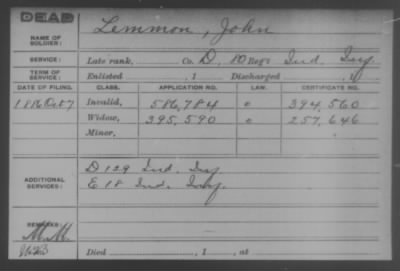 DEAD
NAME OF SOLDIER: Lemmon, John
SERVICE: Late rank, Co. D, 80 Reg't Ind. Inf.
TERM OF SERVICE: Enlisted , 1 Discharged , 1
DATE OF FILING. CLASS. APPLICATION NO. LAW. CERTIFICATE NO.
1886 Oct 7 Invalid, 586,784 394,560
Widow, 395,590 257,646
Minor,
ADDITIONAL SERVICES: D 129 Ind. Inf
E 18 Ind. Inf.
REMARKS: M.M.
Died , 1 , at